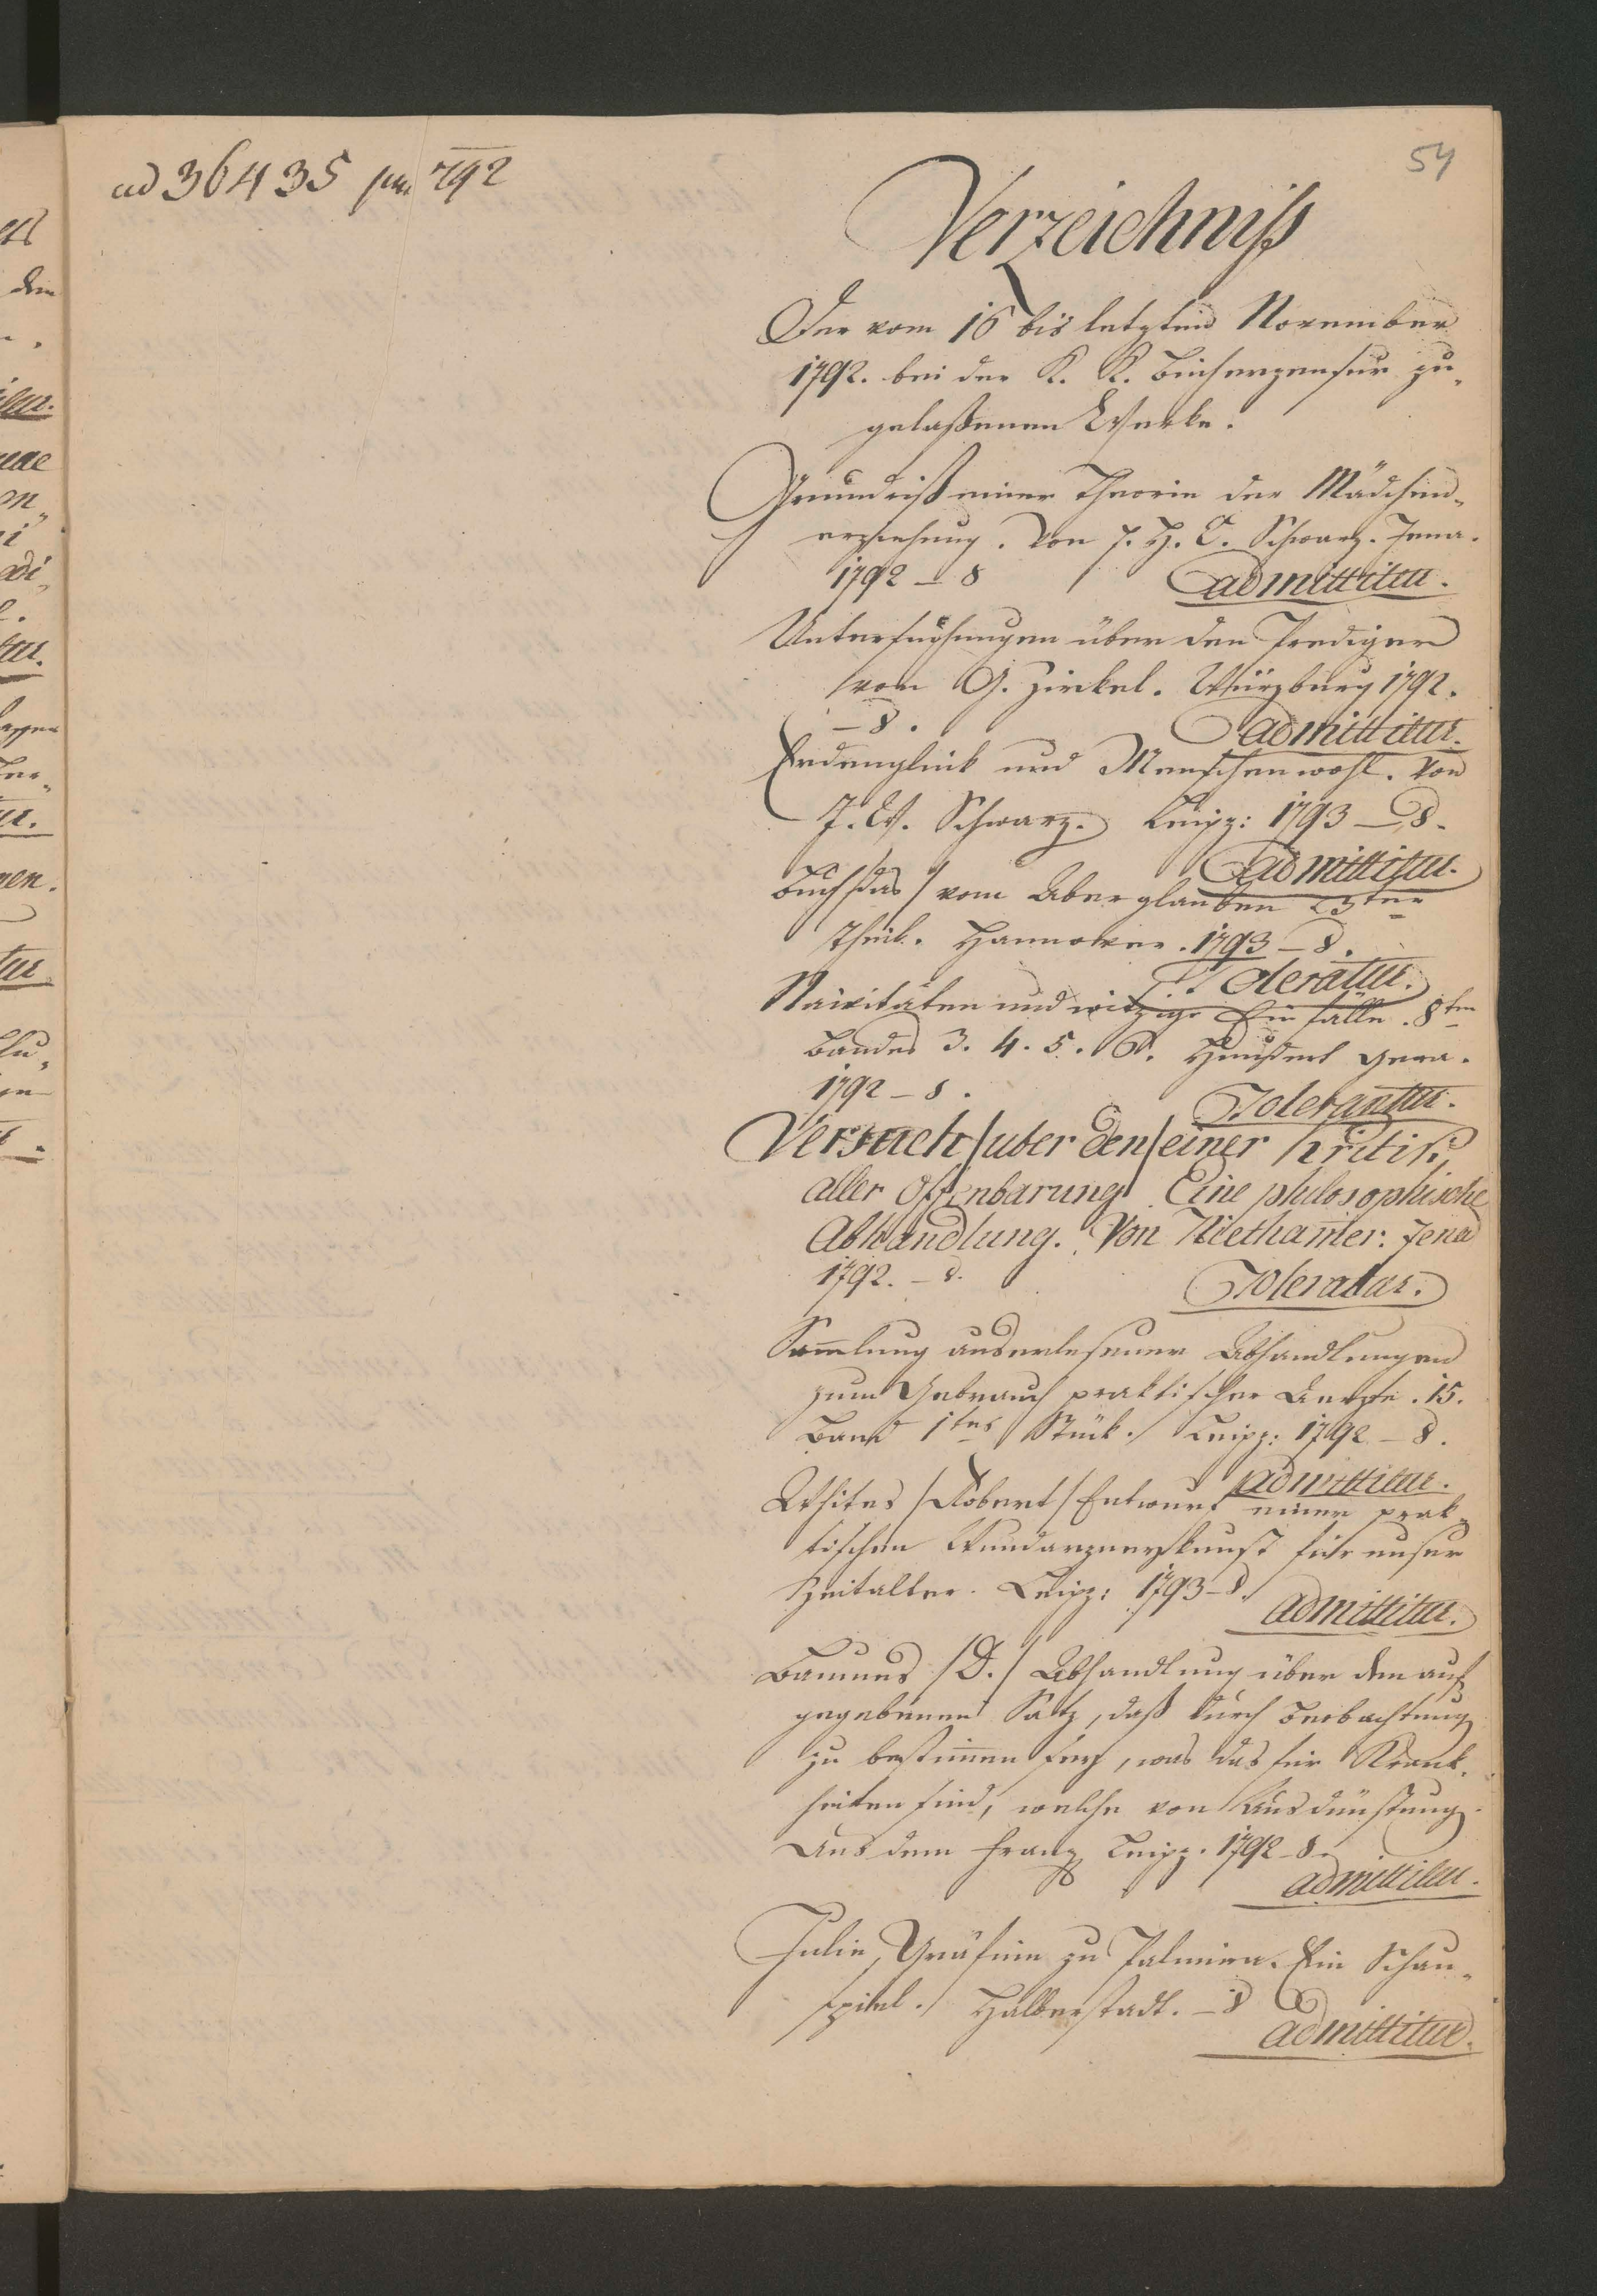 54
ad 36435 pm 792
Verzeichniß
Der vom 16 bis letzten November
1792. bei der K. K. Bücherzensur zu„
gelaßenen Werke.
Grundriß einer Theorie der Mädchen„
erziehung. Von F. H. C. Schwarz. Jena.
1792 – 8
admittitur.
Untersuchungen über den Prediger
von G. Zirkel. Würzburg 1792.
– 8.
admittitur.
Erdenglück und Menschenwohl. Von
J. W. Schwarz. Leipz: 1793 – 8.
admittitur.
Buch /das/ vom Aberglauben 3ter
Theil. Hannover. 1793 – 8.
Toleratur.
Naivitäten und witzige Einfälle. 8ten
Bandes 3. 4. 5. 6. Hundert Gera.
1792 – 8.
Tolerantur.
Versuch /über den/ einer Kritik
aller Offenbarung. Eine philosophische
Abhandlung. Von Niethamer. Jena
1792. – 8.
Toleratur.
Samlung auserlesener Abhandlungen
zum Gebrauch praktischer Aerzte. 15.
Band 1tes Stück. Leipz: 1792 – 8.
admittitur.
Whites /Robert/ Entwurf einer prak„
tischen Wundarzneykunst für unser
Zeitalter. Leipz: 1793 – 8.
admittitur.
Baumes /D./ Abhandlung über den auf„
gegebenen Satz, daß durch Beobachtung
zu bestimen sey, was das für Krank„
heiten sind, welche von Ausdünstung.
Aus dem Franz. Leipz. 1792 – 8.
admittitur.
Julie, Gräfinn zu Palmira. Ein Schau„
spiel. Halberstadt. – 8
admittitur.